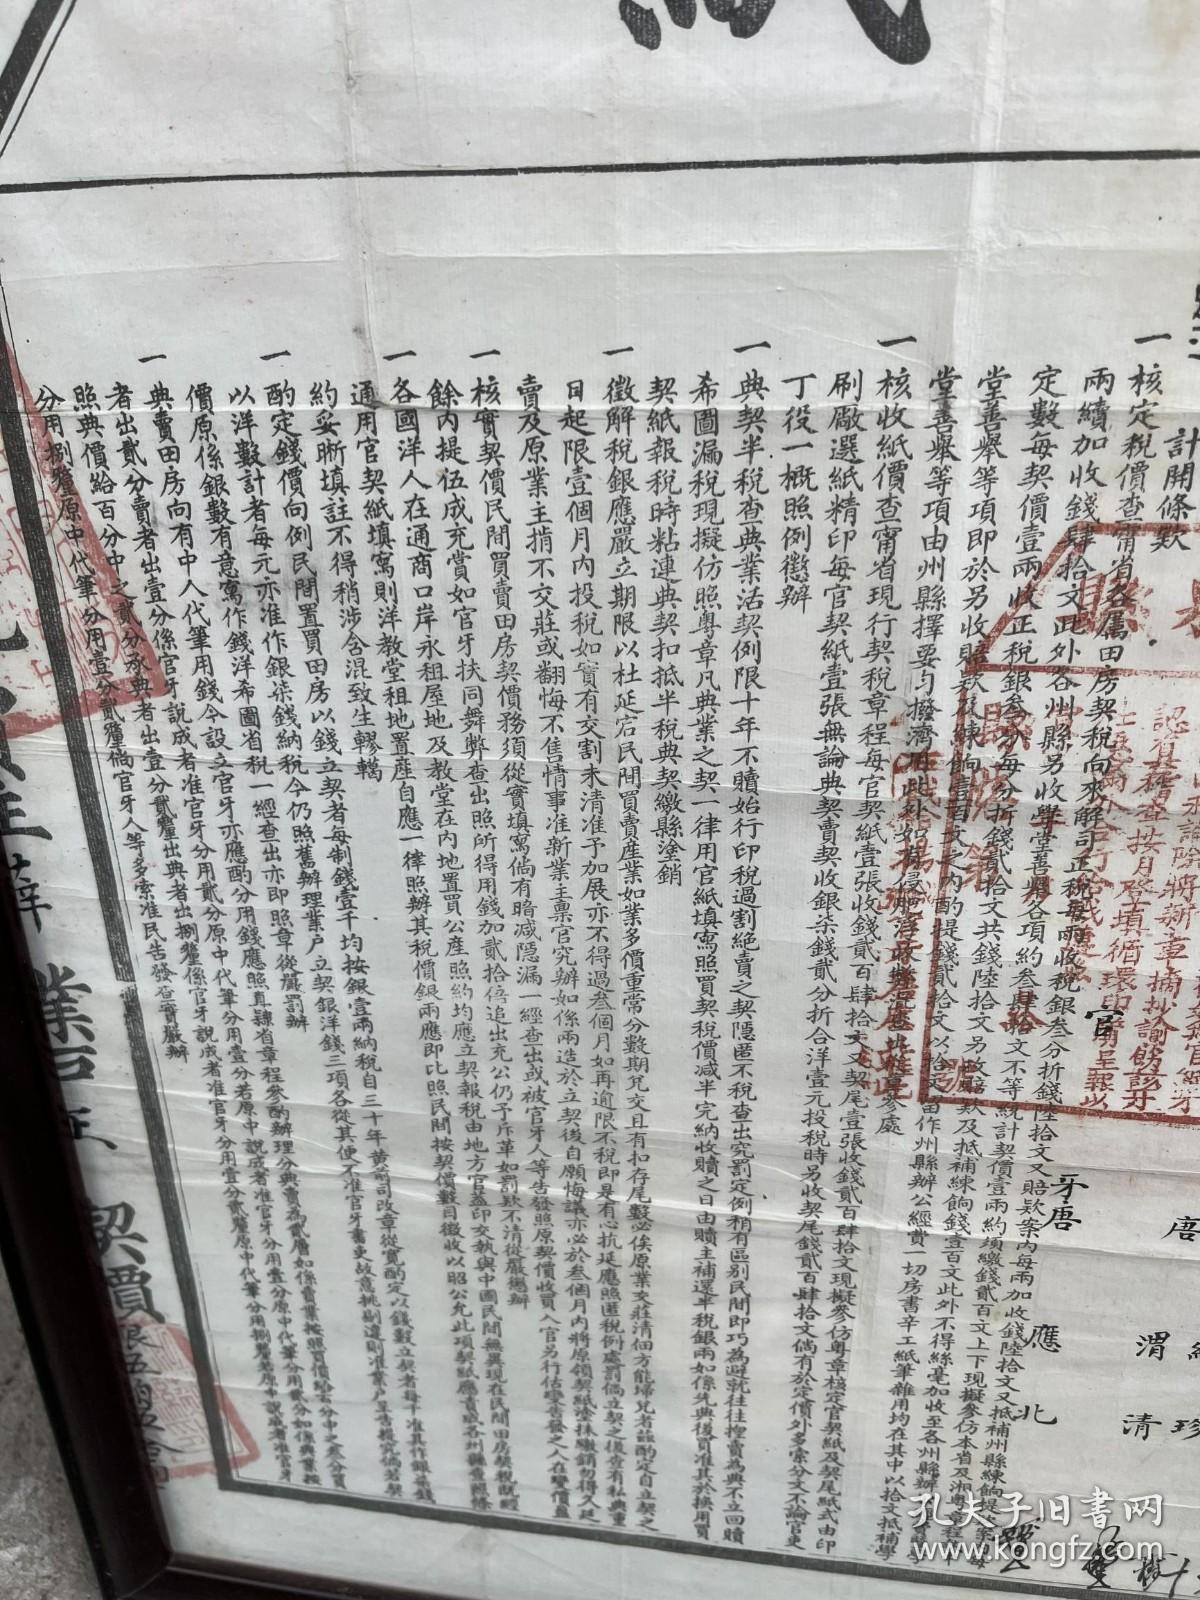 紙
計開條款
一核定稅價查甯省各属田房契稅向來解司正稅每兩收稅銀叁分折錢陸拾文又賠欵案內每兩加收錢陸拾文又抵補州縣練餉提
兩續加收錢肆拾文此外各州縣另收學堂善舉各項約叁肆拾文不等統計契價壹兩約須繳錢貳百文上下現擬參仿本省及湘粵章程
定數每契價壹兩收正稅銀叁分每分折錢貳拾文共錢陸拾文另收賠欵及抵補練餉錢壹百文此外不得絲毫加收至各州縣辦
堂善舉等項即於另收賠欵及練餉壹百文之內酌提錢貳拾文以拾文留作州縣辦公經費一切房書辛工紙筆雜用均在其中以拾文抵補學
堂善舉等項由州縣擇要勻撥濟用此外如
一核收紙價查甯省現行契稅章程每官契紙壹張收錢貳百肆拾文又契尾壹張收錢貳百肆拾文現擬參仿粵章核定官契紙及契尾紙式由印
刷廠選紙精印每官契紙壹張無論典契賣契收銀柒錢貳分折合洋壹元投稅時另收契尾錢貳百肆拾文倘有於定價外多索分文不論官吏
丁役一概照例懲辦
一典契半稅查典業活契例限十年不贖始行印稅過割絕賣之契隱匿不稅查出究罰定例稍有區别民間即巧為避就往往揑賣為典不立回贖
希圖漏稅現擬仿照粵章凡典業之契一律用官紙填寫照買契稅價減半完納收贖之日由贖主補還半稅銀兩如係先典後買准其於換用買
契紙報稅時粘連典契扣抵半稅典契繳縣塗銷
一徵解稅銀應嚴立期限以杜延宕民間買賣產業如業多價重常分數期兌交且有扣存尾數必俟原業交莊清佃方能埽兌者茲酌定自立契之
日起限壹個月內投稅如實有交割未清准予加展亦不得過叁個月如再逾限不稅即是有心抗延應照匿稅例處罰倘立契之後查有私典重
賣及原業主掯不交莊或翻悔不售情事准新業主禀官究辦如係兩造於立契後自願悔議亦必於叁個月內將原領契紙塗抹繳銷勿得久延
一核實契價民間買賣田房契價務須從實填寫倘有暗減隱漏一經查出或被官牙人等告發照原契價收買入官另行估變告發之人在變價盈
餘內提伍成充賞如官牙扶同舞弊查出照所得用錢加貳拾倍追出充公仍予斥革如罰欵不清從嚴懲辦
一各國洋人在通商口岸永租屋地及教堂在內地置買公產照約均應立契報稅由地方官蓋印交執與中國民間無異現在民間田房契稅既經
通用官契紙填寫則洋教堂租地置產自應一律照辦其稅價銀兩應即比照民間按契價數目徵收以昭公允此項契紙應責成各州縣查照條
約妥晰填註不得稍涉含混致生轇轕
一酌定錢價向例民間置買田房以錢立契者每制錢壹千均按銀壹兩納稅自三十年黃前司改章從寬酌定以錢數立契者每千准其作銀柒錢
以洋數計者每元亦准作銀柒錢納稅今仍照舊辦理業戶立契銀洋錢三項各從其便不准官牙書吏故意挑剔違則准業戶呈告提究倘若契
價原係銀數有意寫作錢洋希圖省稅一經查出亦即照章從嚴罰辦
一典賣田房向有中人代筆用錢今設立官牙亦應酌分用錢應照直隸省章程參酌辦理分典賣為貳層如係賣業按照買價每百分中之叁分買
者出貳分賣者出壹分係官牙說成者准官牙分用貳分原中代筆分用壹分若原中說成者准官牙分用壹分原中代筆分用貳分如係典業按
照典價給百分中之貳分承典者出壹分貳釐出典者出捌釐係官牙說成者准官牙分用壹分貳釐原中代筆分用捌釐若原中說成者准官牙
分用捌釐原中代筆分用壹分貳釐倘官牙人等多索准民告發查實嚴辦
官
牙唐
應
北
唐
渭
清
珍
業戶
契價
孔夫子旧书网
www.kongfz.com